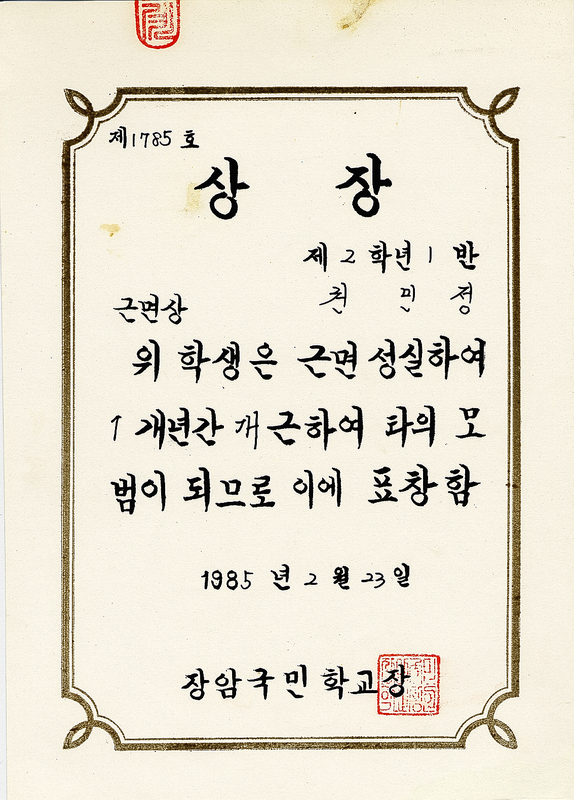 제1785호
상 장
제 2 학년 1 반
천 민 정
근면상
위 학생은 근면 성실하여
1 개년간 개근하여 타의 모
범이 되므로 이에 표창함
1985 년 2 월 23 일
장암국민학교장